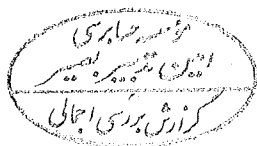 مؤسسه حسابرسی
آئین تدبیر بصیر
گزارش بررسی اجمالی